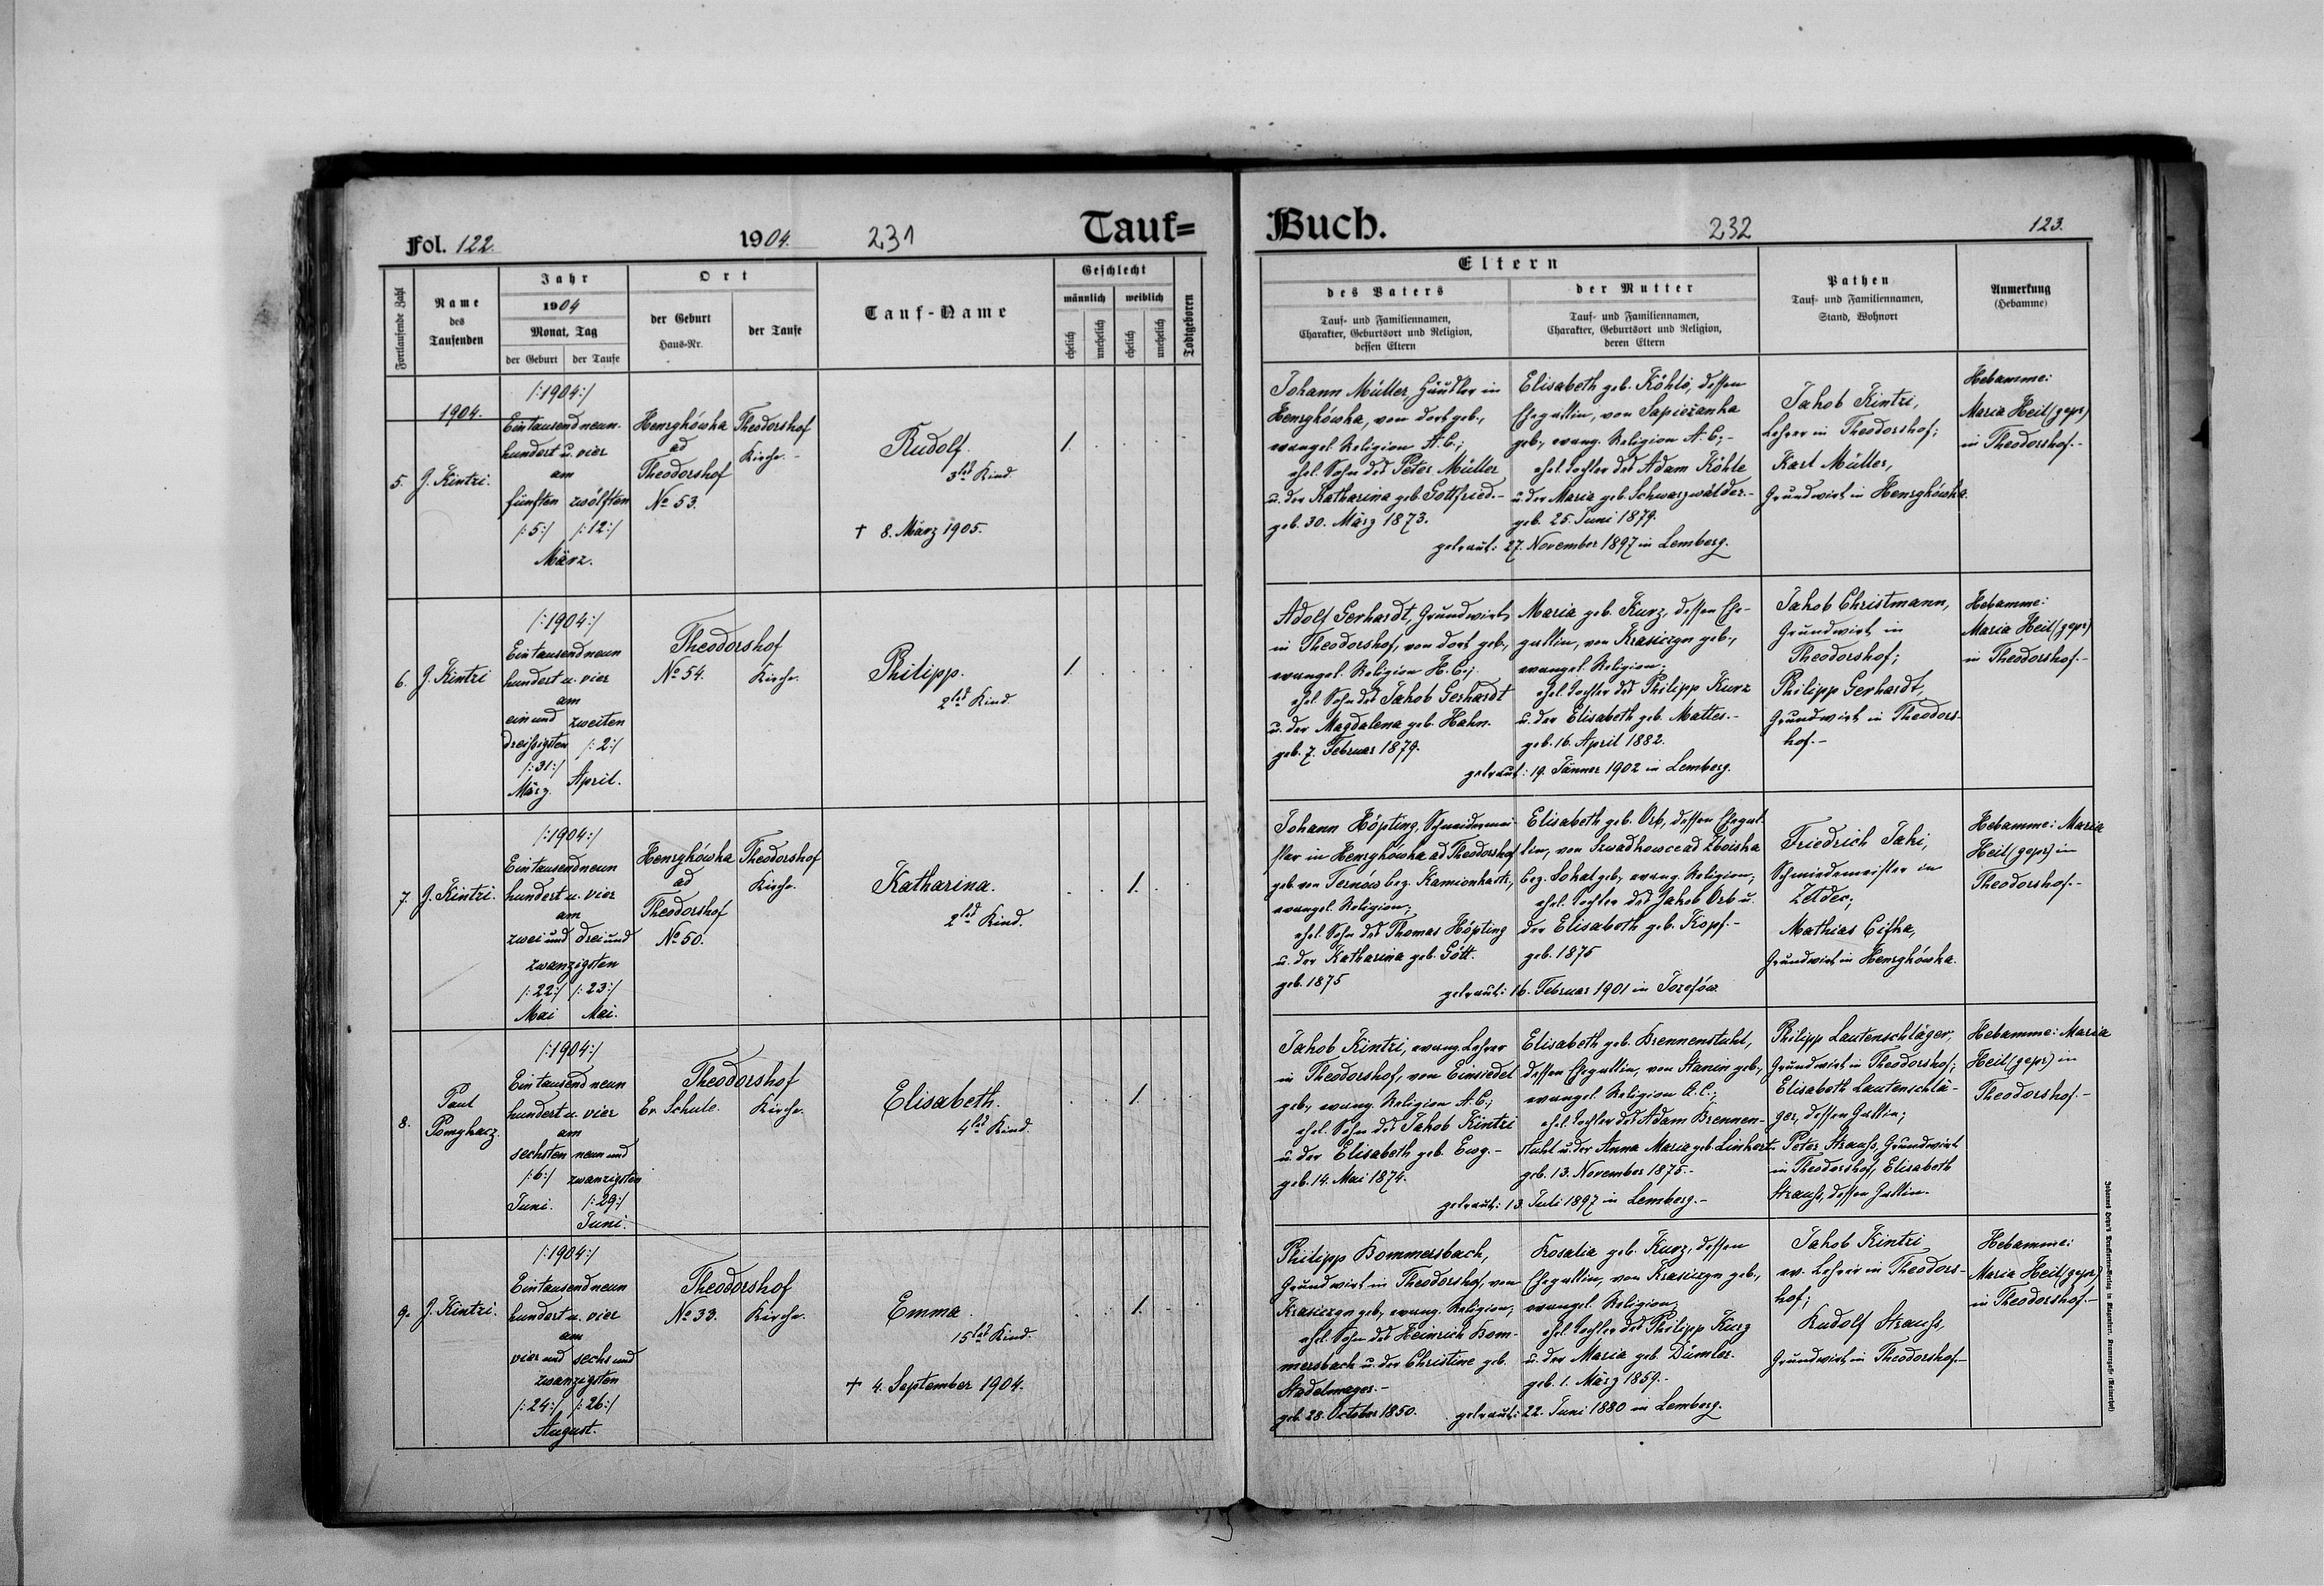 Fol. 122.
1904.
231
Tauf=
Fortlaufende Zahl
Name
des
Taufenden
Jahr
1904
Monat, Tag
der Geburt
der Taufe
Ort
der Geburt
Haus-Nr.
der Taufe
Tauf-Name
Geschlecht
männlich
weiblich
ehelich
unehelich
ehelich
unehelich
Todtgeboren
1904.
5.
J. Kintzi.
/:1904:/
Eintausendneun-
hundert u. vier
am
fünften zwölften
/:5:/ /:12:/
März.
Henrykówka
ad
Theodorshof
No 53.
Theodorshof
Kirche.-
Rudolf.
3tes Kind.
† 8. März 1905.
1.
6.
J. Kintzi
/:1904:/
Eintausendneun
hundert u. vier
am
ein und zweiten
dreißigsten /:2:/
/:31:/
März. April.
Theodorshof
No 54. Kirche.
Philipp.
2tes Kind.
1.
7.
J. Kintzi.
/:1904:/
Eintausendneun
hundert u. vier
am
zwei und drei und
zwanzigsten
/:22:/ /:23:/
Mai Mai.
Henrykówka
ad
Theodorshof
No 50.
Theodorshof
Kirche.
Katharina.
2tes Kind.
1.
8.
Paul
Pomykacz.
/:1904:/
Eintausend neun
hundert u. vier
am
sechsten neun und
/:6:/ zwanzigsten
Juni. /:29:/
Juni.
Theodorshof
Ev. Schule. Kirche.
Elisabeth.
4tes Kind.
1.
9.
J. Kintzi.
/:1904:/
Eintausendneun
hundert u. vier
am
vier und sechs und
zwanzigsten
/:24:/ /:26:/
August.
Theodorshof
No 33. Kirche.
Emma.
15tes Kind.
† 4. September 1904.
1.
Buch.
232
123.
Eltern
des Vaters
Tauf- und Familiennamen,
Charakter, Geburtsort und Religion,
dessen Eltern
der Mutter
Tauf- und Familiennamen,
Charakter, Geburtsort und Religion,
deren Eltern
Pathen
Tauf- und Familiennamen,
Stand, Wohnort
Anmerkung
(Hebamme)
Johann Müller, Häusler in
Henrykówka, von dort geb.,
evangel. Religion A.C.;
ehel. Sohn des Peter Müller
u. der Katharina geb. Gottfried.-
geb. 30. März 1873.
Elisabeth geb. Köhle, dessen
Ehegattin, von Sapieżanka
geb., evang. Religion A.C.;-
ehel. Tochter des Adam Köhle
u. der Maria geb. Schwarzwälder.-
geb. 25. Juni 1879.
getraut: 27. November 1897 in Lemberg.
Jakob Kintzi,
Lehrer in Theodorshof;
Karl Müller,
Grundwirt in Henrykówka.
Hebamme:
Maria Heil (gepr)
in Theodorshof.-
Adolf Gerhardt, Grundwirt
in Theodorshof, von dort geb.,
evangel. Religion H.C.;
ehel. Sohn des Jakob Gerhardt
u. der Magdalena geb. Hahn.
geb. 7. Februar 1879.
Maria geb. Kurz, dessen Ehe-
gattin, von Krasiczyn geb.,
evangel. Religion;
ehel. Tochter des Philipp Kurz
u. der Elisabeth geb. Mattes.-
geb. 16. April 1882.
getraut: 19. Jänner 1902 in Lemberg.
Jakob Christmann,
Grundwirt in
Theodorshof;
Philipp Gerhardt,
Grundwirt in Theodors-
hof.-
Hebamme:
Maria Heil (gepr)
in Theodorshof.-
Johann Höpting, Schneidermei-
ster in Henrykówka ad Theodorshof
geb. von bez. Kamionkastr.,
evangel. Religion;
ehel. Sohn des Thomas Höpting
u. der Katharina geb. Gött.
geb. 1875
Elisabeth geb. Orb, dessen Ehegat-
tin, von ad Zboiska
bez. Sokal geb., evang. Religion;
ehel. Tochter des Jakob Orb u.
der Elisabeth geb. Kopf.-
geb. 1875
getraut: 16. Februar 1901 in Josefów.
Friedrich Jaki,
Schmiedemeister in
Zeldec;
Mathias
Grundwirt in Henrykówka.
Hebamme: Maria
Heil (gepr) in
Theodorshof.-
Jakob Kintzi, evang. Lehrer
in Theodorshof, von Einsiedel
geb., evang. Religion A.C.;
ehel. Sohn des Jakob Kintzi
u. der Elisabeth geb. Ewy.-
geb. 14. Mai 1874.
Elisabeth geb. Brennenstuhl,
dessen Ehegattin, von Stanin geb.,
evangel. Religion A.C.;
ehel. Tochter des Adam Brennen-
stuhl u. der Anna Maria geb. Linhart.
geb. 13. November 1875.-
getraut: 13. Juli 1897 in Lemberg.-
Philipp Lautenschläger,
Grundwirt in Theodorshof;
Elisabeth Lautenschlä-
ger, dessen Gattin;
Peter Strauß, Grundwirt
in Theodorshof, Elisabeth
Strauß, dessen Gattin.
Hebamme: Maria
Heil (gepr) in
Theodorshof.-
Philipp Bommersbach,
Grundwirt in Theodorshof, von
Krasiczyn geb., evang. Religion;
ehel. Sohn des Heinrich Bom-
mersbach u. der Christine geb.
Stadelmayer.-
geb. 28. October 1850.
Rosalia geb. Kurz, dessen
Ehegattin, von Krasiczyn geb.,
evangel. Religion;
ehel. Tochter des Philipp Kurz
u. der Maria geb. Dümler.
geb. 1. März 1859.-
getraut: 22. Juni 1880 in Lemberg.
Jakob Kintzi
ev. Lehrer in Theodors-
hof;
Rudolf Strauß,
Grundwirt in Theodorshof.-
Hebamme:
Maria Heil (gepr)
in Theodorshof.-